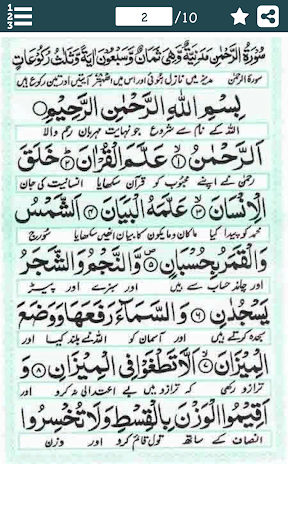 2 /10
سُوْرَةُ الرَّحْمٰنِ مَدَنِيَّةٌ وَّهِيَ ثَمَانٌ وَّسَبْعُوْنَ اٰيَةً وَّثَلٰثُ رُكُوْعَاتٍ
سورۃ الرحمٰن مدینہ میں نازل ہوئی اور اس میں اٹھہتر آیتیں اور تین رکوع ہیں
بِسْمِ اللّٰهِ الرَّحْمٰنِ الرَّحِيْمِ
اللہ کے نام سے شروع جو نہایت مہربان رحم والا
اَلرَّحْمٰنُ ۙ۱ عَلَّمَ الْقُرْاٰنَ ؕ۲ خَلَقَ
رحمٰن نے اپنے محبوب کو قرآن سکھایا انسانیت کی جان
الْاِنْسَانَ ۙ۳ عَلَّمَهُ الْبَيَانَ ۴ اَلشَّمْسُ
محمد کو پیدا کیا ماکان ومایکون کا بیان انھیں سکھایا سورج
وَالْقَمَرُ بِحُسْبَانٍ ۵ وَّالنَّجْمُ وَالشَّجَرُ
اور چاند حساب سے ہیں اور سبزے اور پیڑ
يَسْجُدٰنِ ۶ وَالسَّمَآءَ رَفَعَهَا وَوَضَعَ
سجدہ کرتے ہیں اور آسمان کو اللہ نے بلند کیا اور
الْمِيْزَانَ ۙ۷ اَلَّا تَطْغَوْا فِي الْمِيْزَانِ ۸ وَ
ترازو رکھی کہ ترازو میں بے اعتدالی نہ کرو اور
اَقِيْمُوا الْوَزْنَ بِالْقِسْطِ وَلَا تُخْسِرُوا
انصاف کے ساتھ تول قائم کرو اور وزن